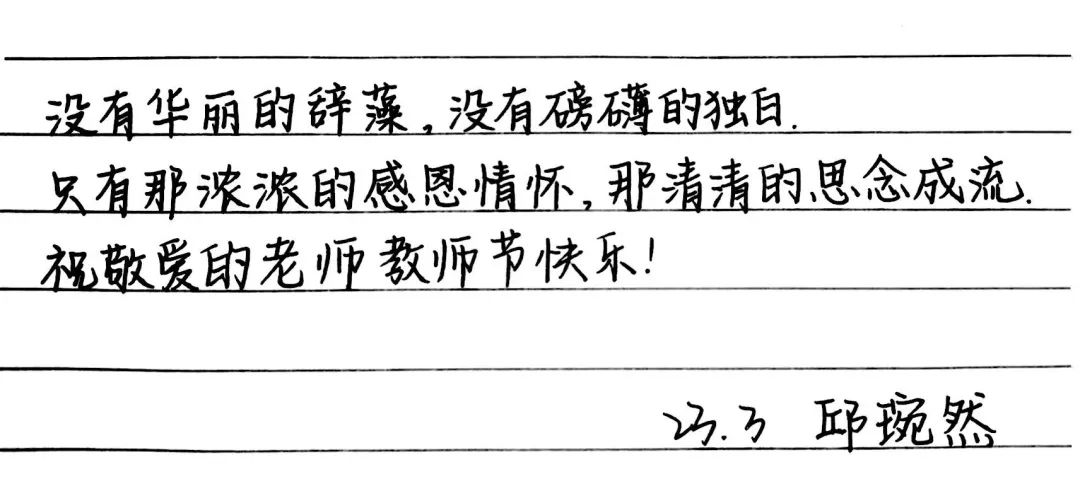 没有华丽的辞藻,没有磅礴的独白.
只有那浓浓的感恩情怀,那清清的思念成流.
祝敬爱的老师教师节快乐!
23.3 邱琬然